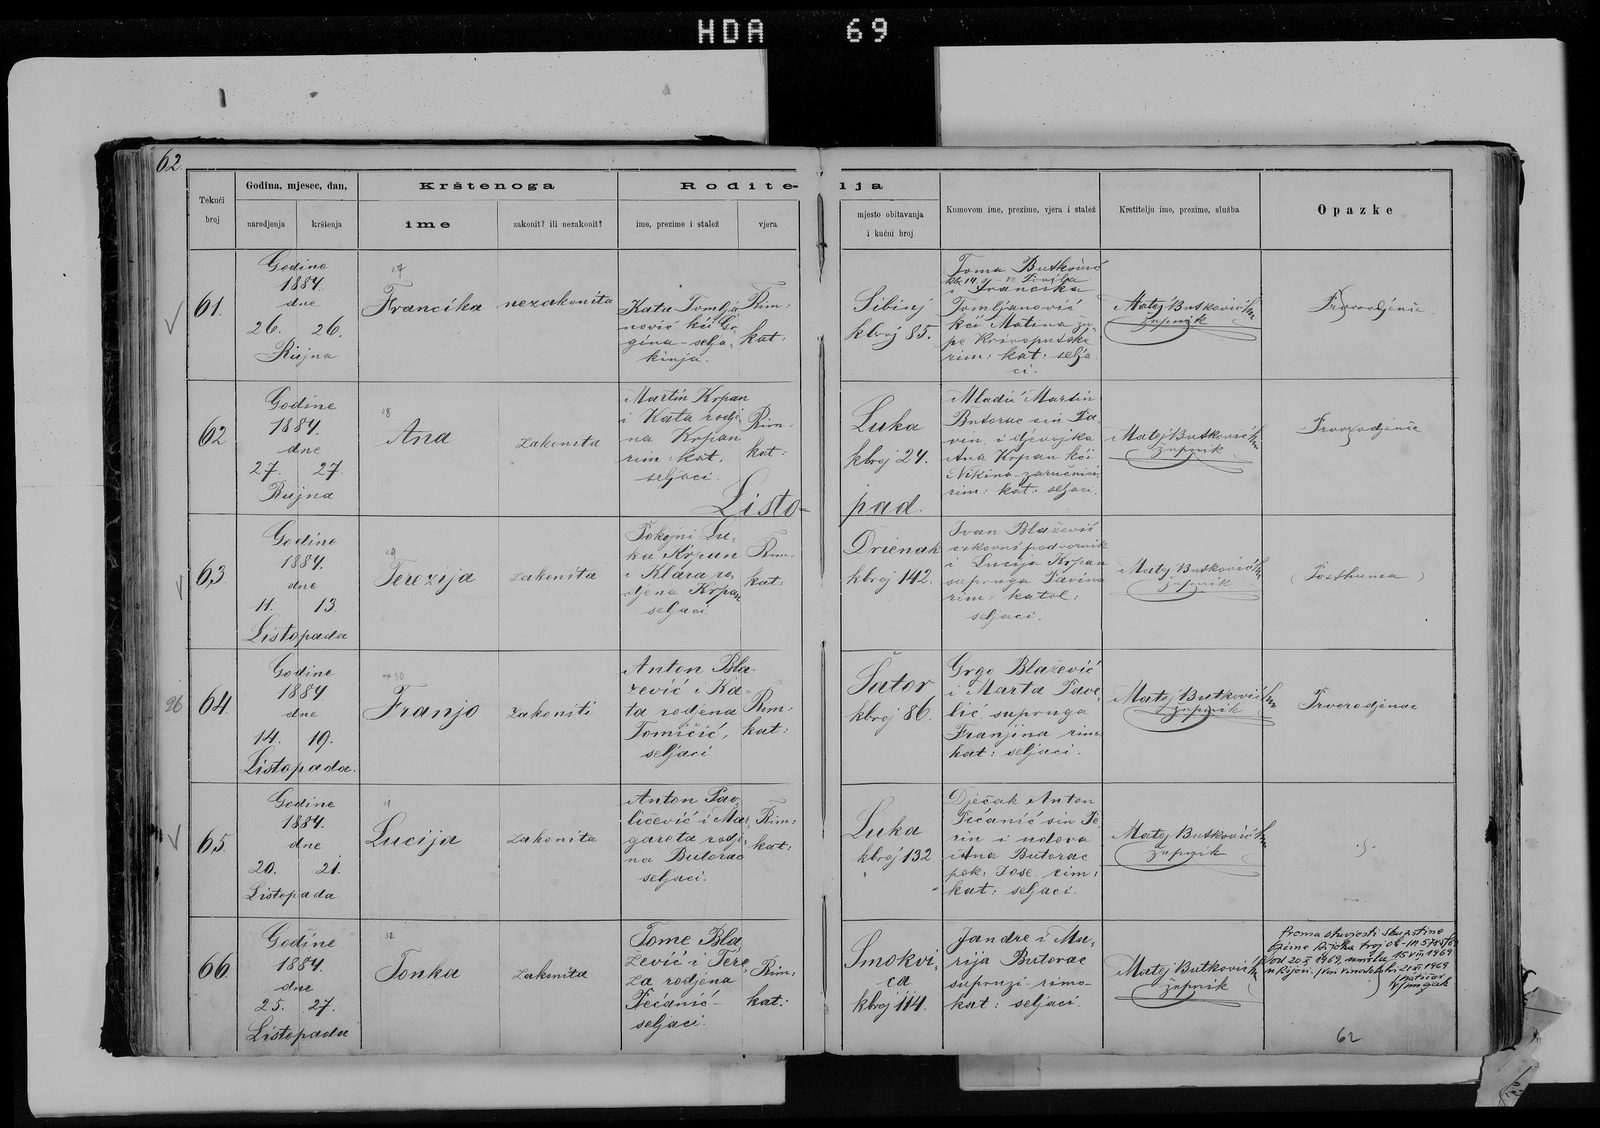 HDA 69
62.
Tekući broj
Godina, mjesec, dan,
narodjenja
krštenja
Krštenoga
ime
zakonit? ili nezakonit?
Roditelja
ime, prezime i stalež
vjera
mjesto obitavanja i kućni broj
Kumovom ime, prezime, vjera i stalež
Krstitelju ime, prezime, služba
Opazke
61.
Godine
1884.
dne
26. 26.
Rujna
27
Francika
nezakonita
Kata Tomlja-
nović kći Gr-
gina – selja-
kinja.
Rim:
kat:
Sibinj
kbroj 85.
Toma Butković
i Francika
Tomljanović
kći Matina žu-
pe Krivoputske
rim: kat: selja
ci.
Matej Butković
župnik
Prvorodjenče
62
Godine
1884.
dne
27. 27.
Rujna
28
Ana
zakonita
Martin Krpan
i Kata rodje
na Krpan
rim: kat.
seljaci.
Rim:
kat:
Luka
kbroj 24.
Mladić Martin
Butorac sin Pa-
vin i djevojka
Ana Krpan kći
Nikina zaručnici
rim: kat: seljaci.
Matej Butković
župnik
Prvorodjenče
Listo-
pad.
63.
Godine
1884.
dne
11. 13.
Listopada
29
Terezija
zakonita
Pokojni Lu-
ka Krpan
i Klara ro
djena Krpan
seljaci.
Rim:
kat:
Drienak
kbroj 142.
Ivan Blažević
crkovni podvornik
i Lucija Krpan
supruga Pavina
rim: katol:
seljaci.
Matej Butković
župnik
(Posthuma)
96
64.
Godine
1884.
dne
14. 19.
Listopada.
30
Franjo
zakoniti
Anton Bla-
žević i Ka-
ta rodjena
Tomičić,
seljaci
Rim:
kat:
Šutor
kbroj 86.
Grgo Blažević
i Marta Pave-
lić supruga
Franjina rim
kat: seljaci.
Matej Butković
župnik
Prvorodjenac
65
Godine
1884.
dne
20. 21.
Listopada
31
Lucija
zakonita
Anton Pav-
ličević i Mar
gareta rodje-
na Butorac
seljaci.
Rim:
kat:
Luka
kbroj 132
Dječak Anton
Pećanić sin Pe
rin i udova
Ana Butorac
pok: Jose. rim:
kat: seljaci.
Matej Butković
župnik
66.
Godine
1884.
dne
25. 27.
Listopada
32
Tonka
zakonita
Tome Bla
žević i Tere
za rodjena
Pećanić –
seljaci.
Rim:
kat:
Smokvi-
ca
kbroj 114.
Jandre i Ma-
rija Butorac
supruzi – rimo-
kat: seljaci.
Matej Butković
župnik
Prema obavijesti skupštine
općine Rijeka broj
od 20 1969, umrla 15 VIII 1969
u Rijeci. 1969
matičar
62